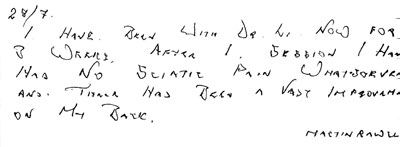 28/7.
I HAVE BEEN WITH DR. LI. NOW FOR
3 WEEKS. AFTER 1. SESSION I HAV
HAD NO SCIATIC PAIN WHATSOEVER
AND. THERE HAS BEEN A VAST IMPROVEM
ON MY BACK.
MARTIN